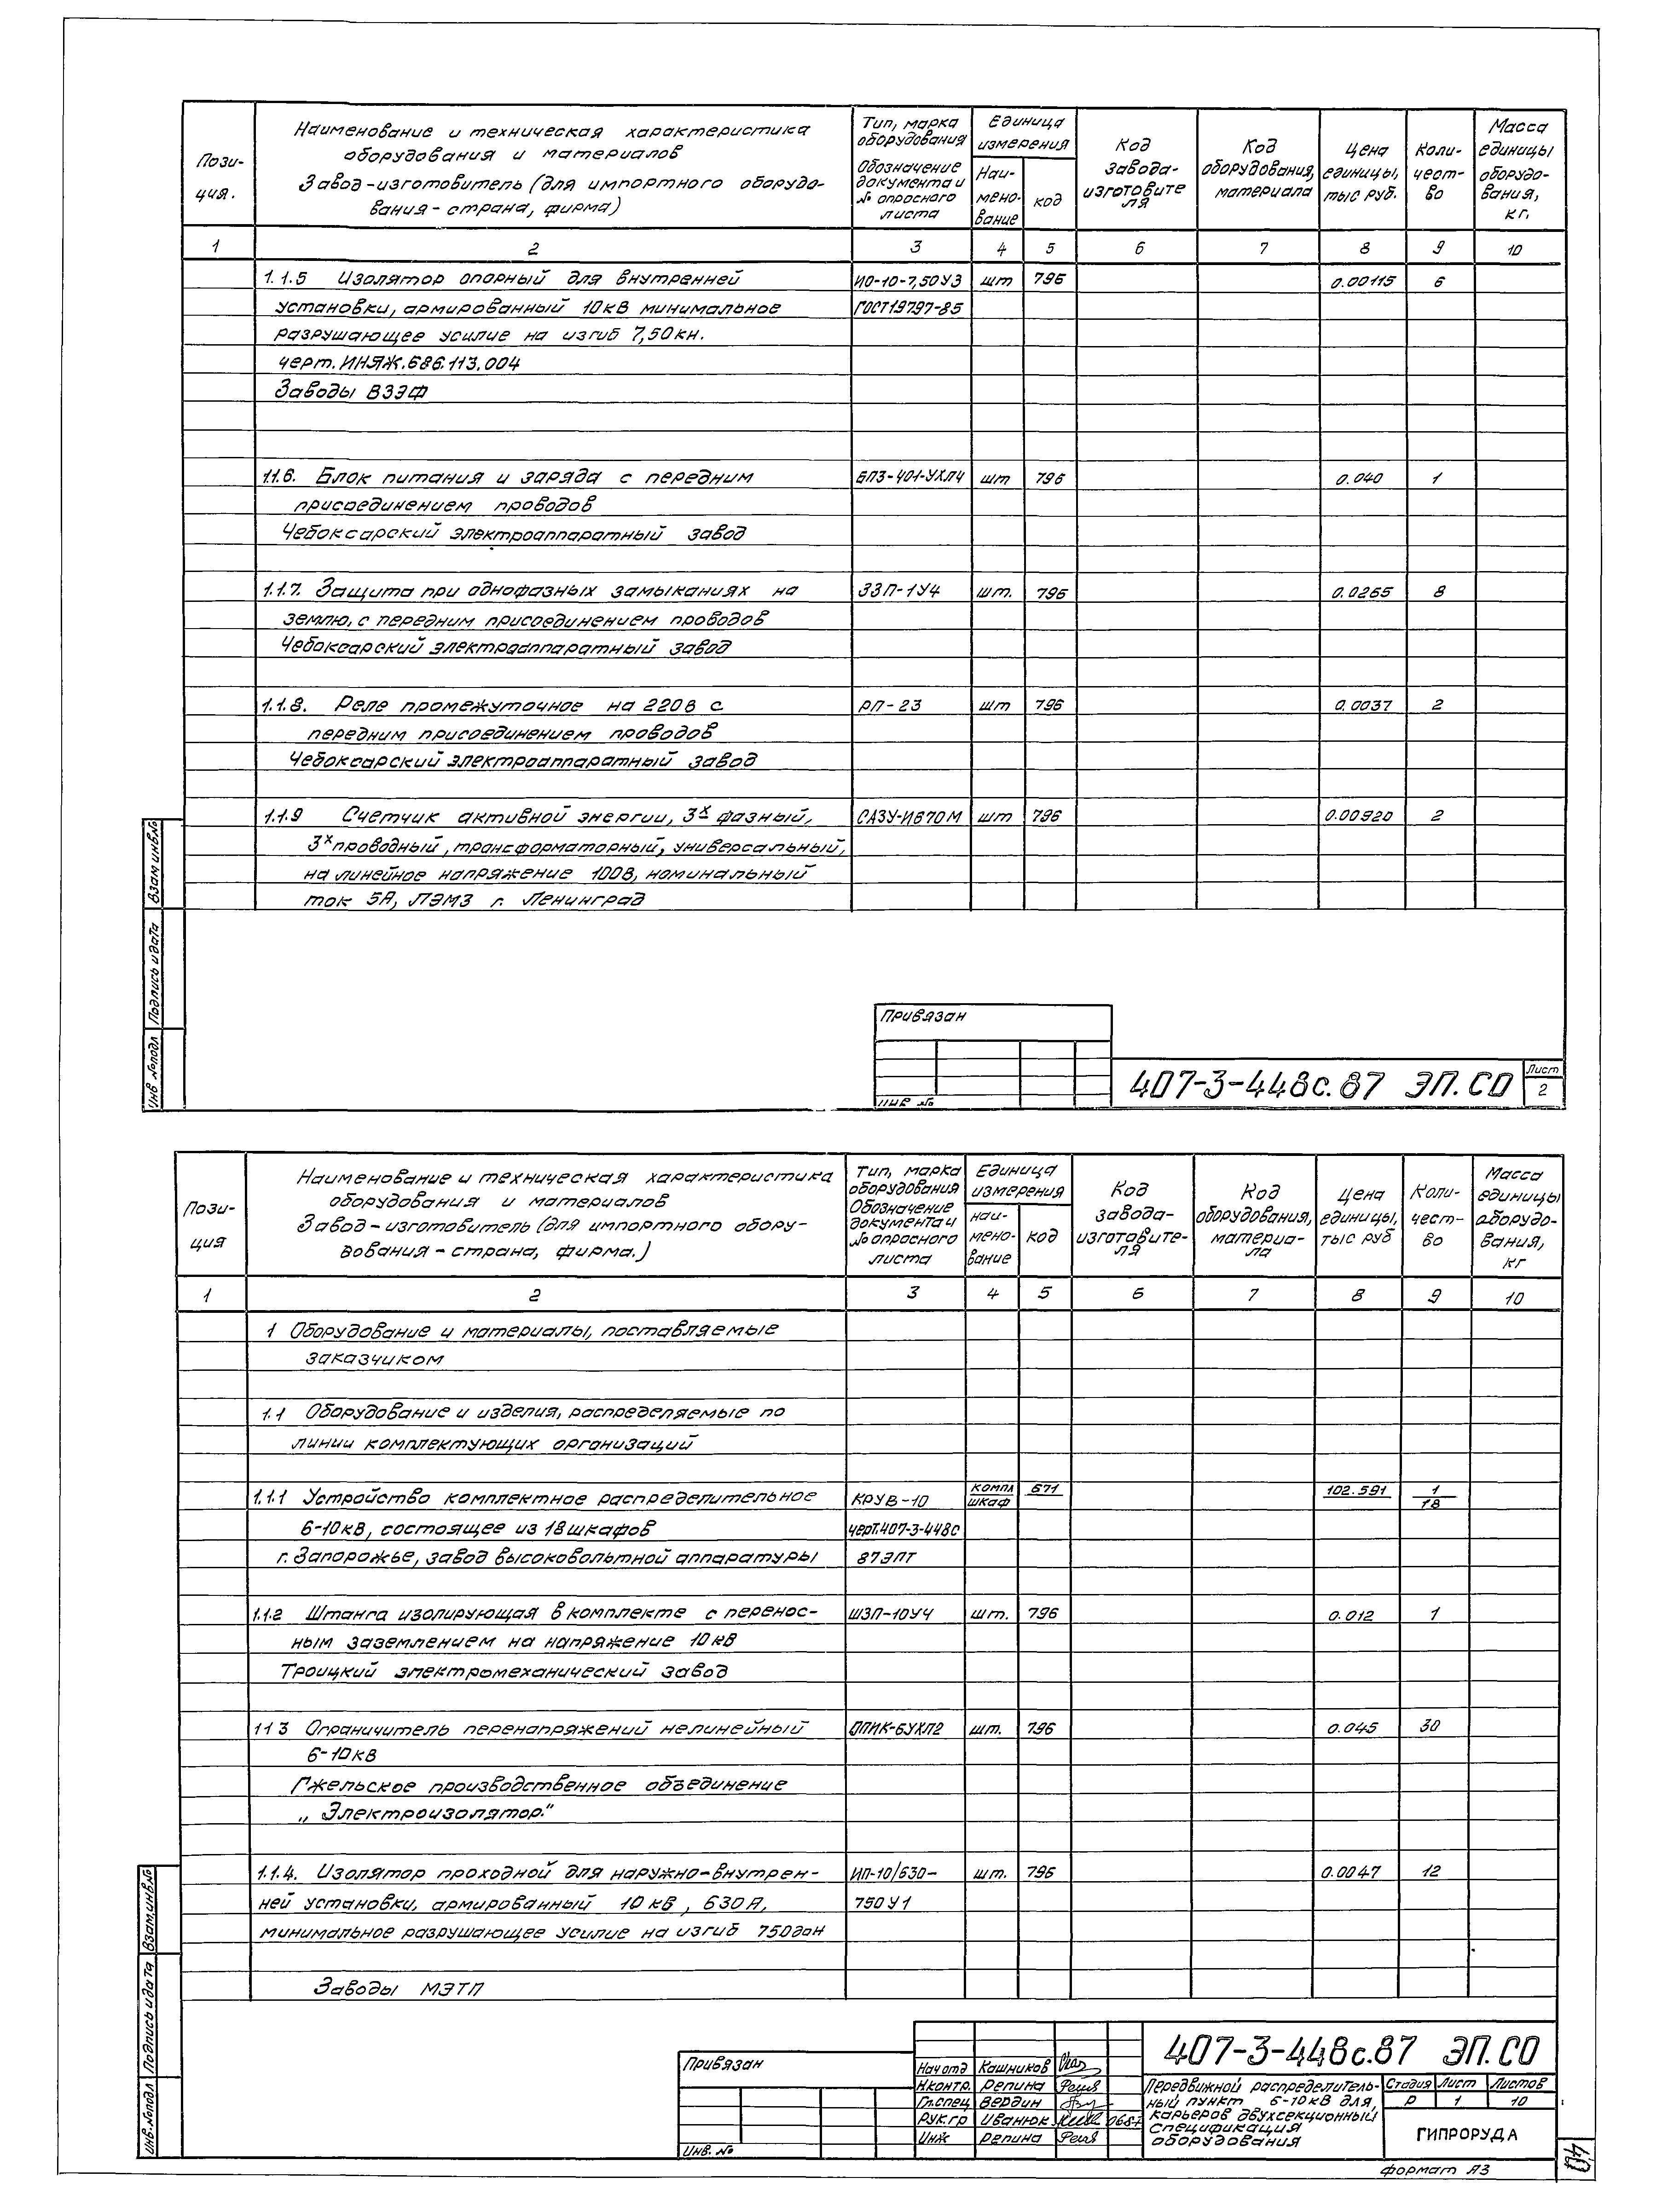 Пози-
ция.
Наименование и техническая характеристика
оборудования и материалов
Завод-изготовитель (для импортного оборудо-
вания - страна, фирма)
Тип, марка
оборудования
Обозначение
документа и
№ опросного
листа
Единица
измерения
Наи-
мено-
вание
код
Код
завода-
изготовите
ля
Код
оборудования,
материала
Цена
единицы,
тыс руб.
Коли-
чест-
во
Масса
единицы
оборудо-
вания,
кг.
1 2 3 4 5 6 7 8 9 10
1.1.5 Изолятор опорный для внутренней ИО-10-7,50У3 шт 796 0.00115 6
установки, армированный 10кВ минимальное ГОСТ19797-85
разрушающее усилие на изгиб 7,50кн.
черт. ИНЯЖ.686.113.004
Заводы ВЗЭФ
1.1.6. Блок питания и заряда с передним БПЗ-401-УХЛ4 шт 796 0.040 1
присоединением проводов
Чебоксарский электроаппаратный завод
1.1.7. Защита при однофазных замыканиях на ЗЗП-1У4 шт. 796 0.0265 8
землю, с передним присоединением проводов
Чебоксарский электроаппаратный завод
1.1.8. Реле промежуточное на 220в с РП-23 шт 796 0.0037 2
передним присоединением проводов
Чебоксарский электроаппаратный завод
1.1.9 Счетчик активной энергии, 3х фазный, САЗУ-И670М шт 796 0.00920 2
3х проводный, трансформаторный, универсальный,
на линейное напряжение 100В, номинальный
ток 5А, ЛЭМЗ г. Ленинград
Взам инв.№
Подпись и дата
Инв №подл
Привязан
Инв №
407-3-448с.87 ЭП.СО
Лист
2
Пози-
ция
Наименование и техническая характеристика
оборудования и материалов
Завод-изготовитель (для импортного обору-
дования - страна, фирма.)
Тип, марка
оборудования
Обозначение
документа и
№ опросного
листа
Единица
измерения
наи-
мено-
вание
код
Код
завода-
изготовите-
ля
Код
оборудования,
материа-
ла
Цена
единицы,
тыс руб
Коли-
чест-
во
Масса
единицы
оборудо-
вания,
кг
1 2 3 4 5 6 7 8 9 10
1 Оборудование и материалы, поставляемые
заказчиком
1.1 Оборудование и изделия, распределяемые по
линии комплектующих организаций
1.1.1 Устройство комплектное распределительное КРУВ-10 компл/шкаф 671 102.591 1/18
6-10кВ, состоящее из 18 шкафов черт.407-3-448с
г. Запорожье, завод высоковольтной аппаратуры 87ЭПТ
1.1.2 Штанга изолирующая в комплекте с перенос- ШЗП-10У4 шт. 796 0.012 1
ным заземлением на напряжение 10кВ
Троицкий электромеханический завод
1 1 3 Ограничитель перенапряжений нелинейный ОПНК-6УХЛ2 шт. 796 0.045 30
6-10кВ
Гжельское производственное объединение
„Электроизолятор."
1.1.4. Изолятор проходной для наружно-внутрен- ИП-10/630- шт. 796 0.0047 12
ней установки, армированный 10кВ, 630А, 750У1
минимальное разрушающее усилие на изгиб 750даН
Заводы МЭТП
Взам.инв.№
Подпись и дата
Инв.№подл
Привязан
Инв. №
Нач отд Кашников
Н.контр. Репина
Гл.спец Вердин
Рук.гр Иванюк 0687
Инж Репина
407-3-448с.87 ЭП.СО
Передвижной распределитель-
ный пункт 6-10кВ для
карьеров двухсекционный
Спецификация
оборудования
Стадия Лист Листов
Р 1 10
ГИПРОРУДА
формат А3
40